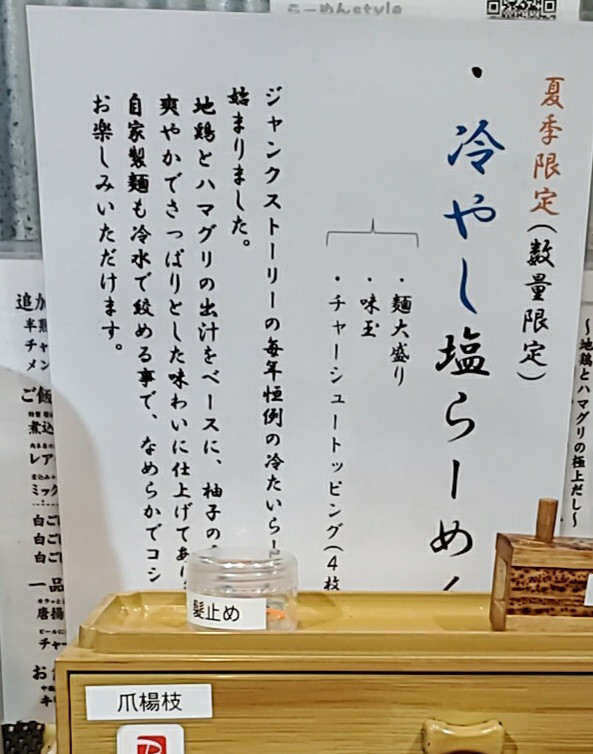 らーめんstyle
夏季限定(数量限定)
・冷やし塩らーめ
・麺大盛り
・味玉
・チャーシュートッピング(4枚
ジャンクストーリーの毎年恒例の冷たいらー
始まりました。
地鶏とハマグリの出汁をベースに、柚子の
爽やかでさっぱりとした味わいに仕上げてあり
自家製麺も冷水で絞める事で、なめらかでコシ
お楽しみいただけます。
〜地鶏とハマグリの極上だし〜
追加
半熟
チャ
メン
ご飯
煮込
レア
ミック
白ご
白ご
白ご
一品
唐揚
チャー
髪止め
爪楊枝